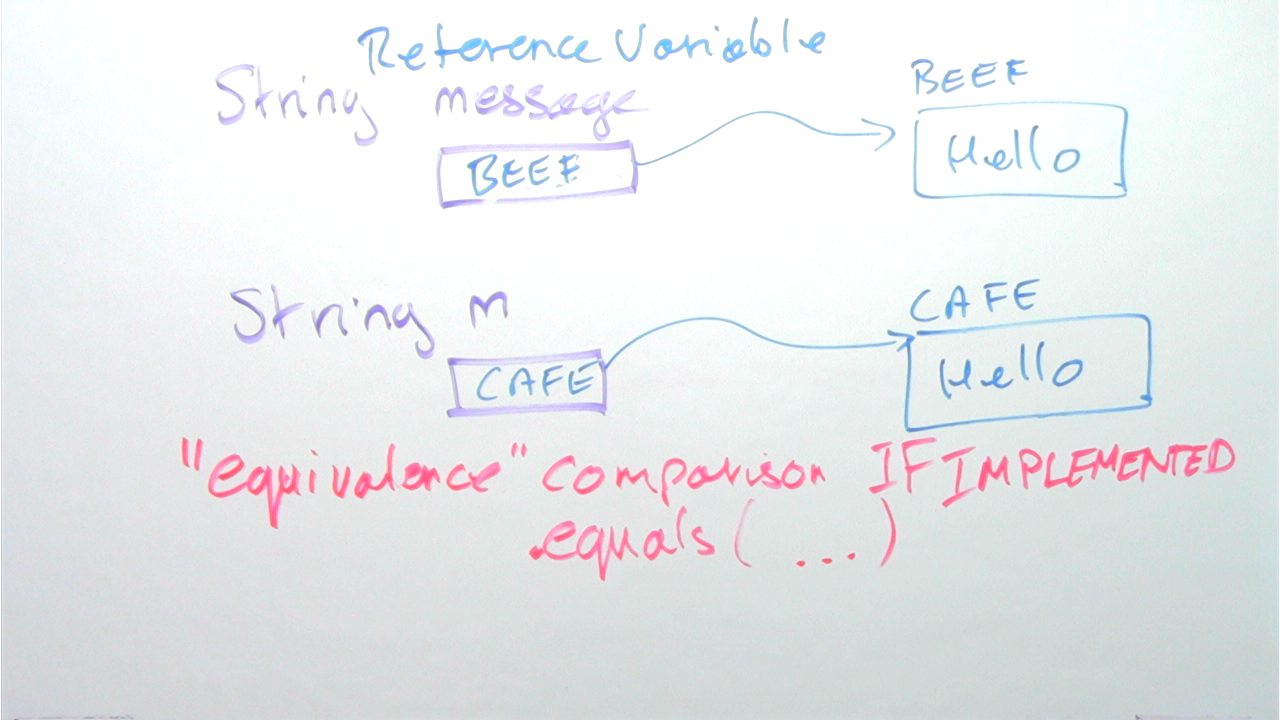 Reference Variable
String message
BEEF
BEEF
Hello
String m
CAFE
CAFE
Hello
"equivalence" comparison IF IMPLEMENTED
.equals( ... )